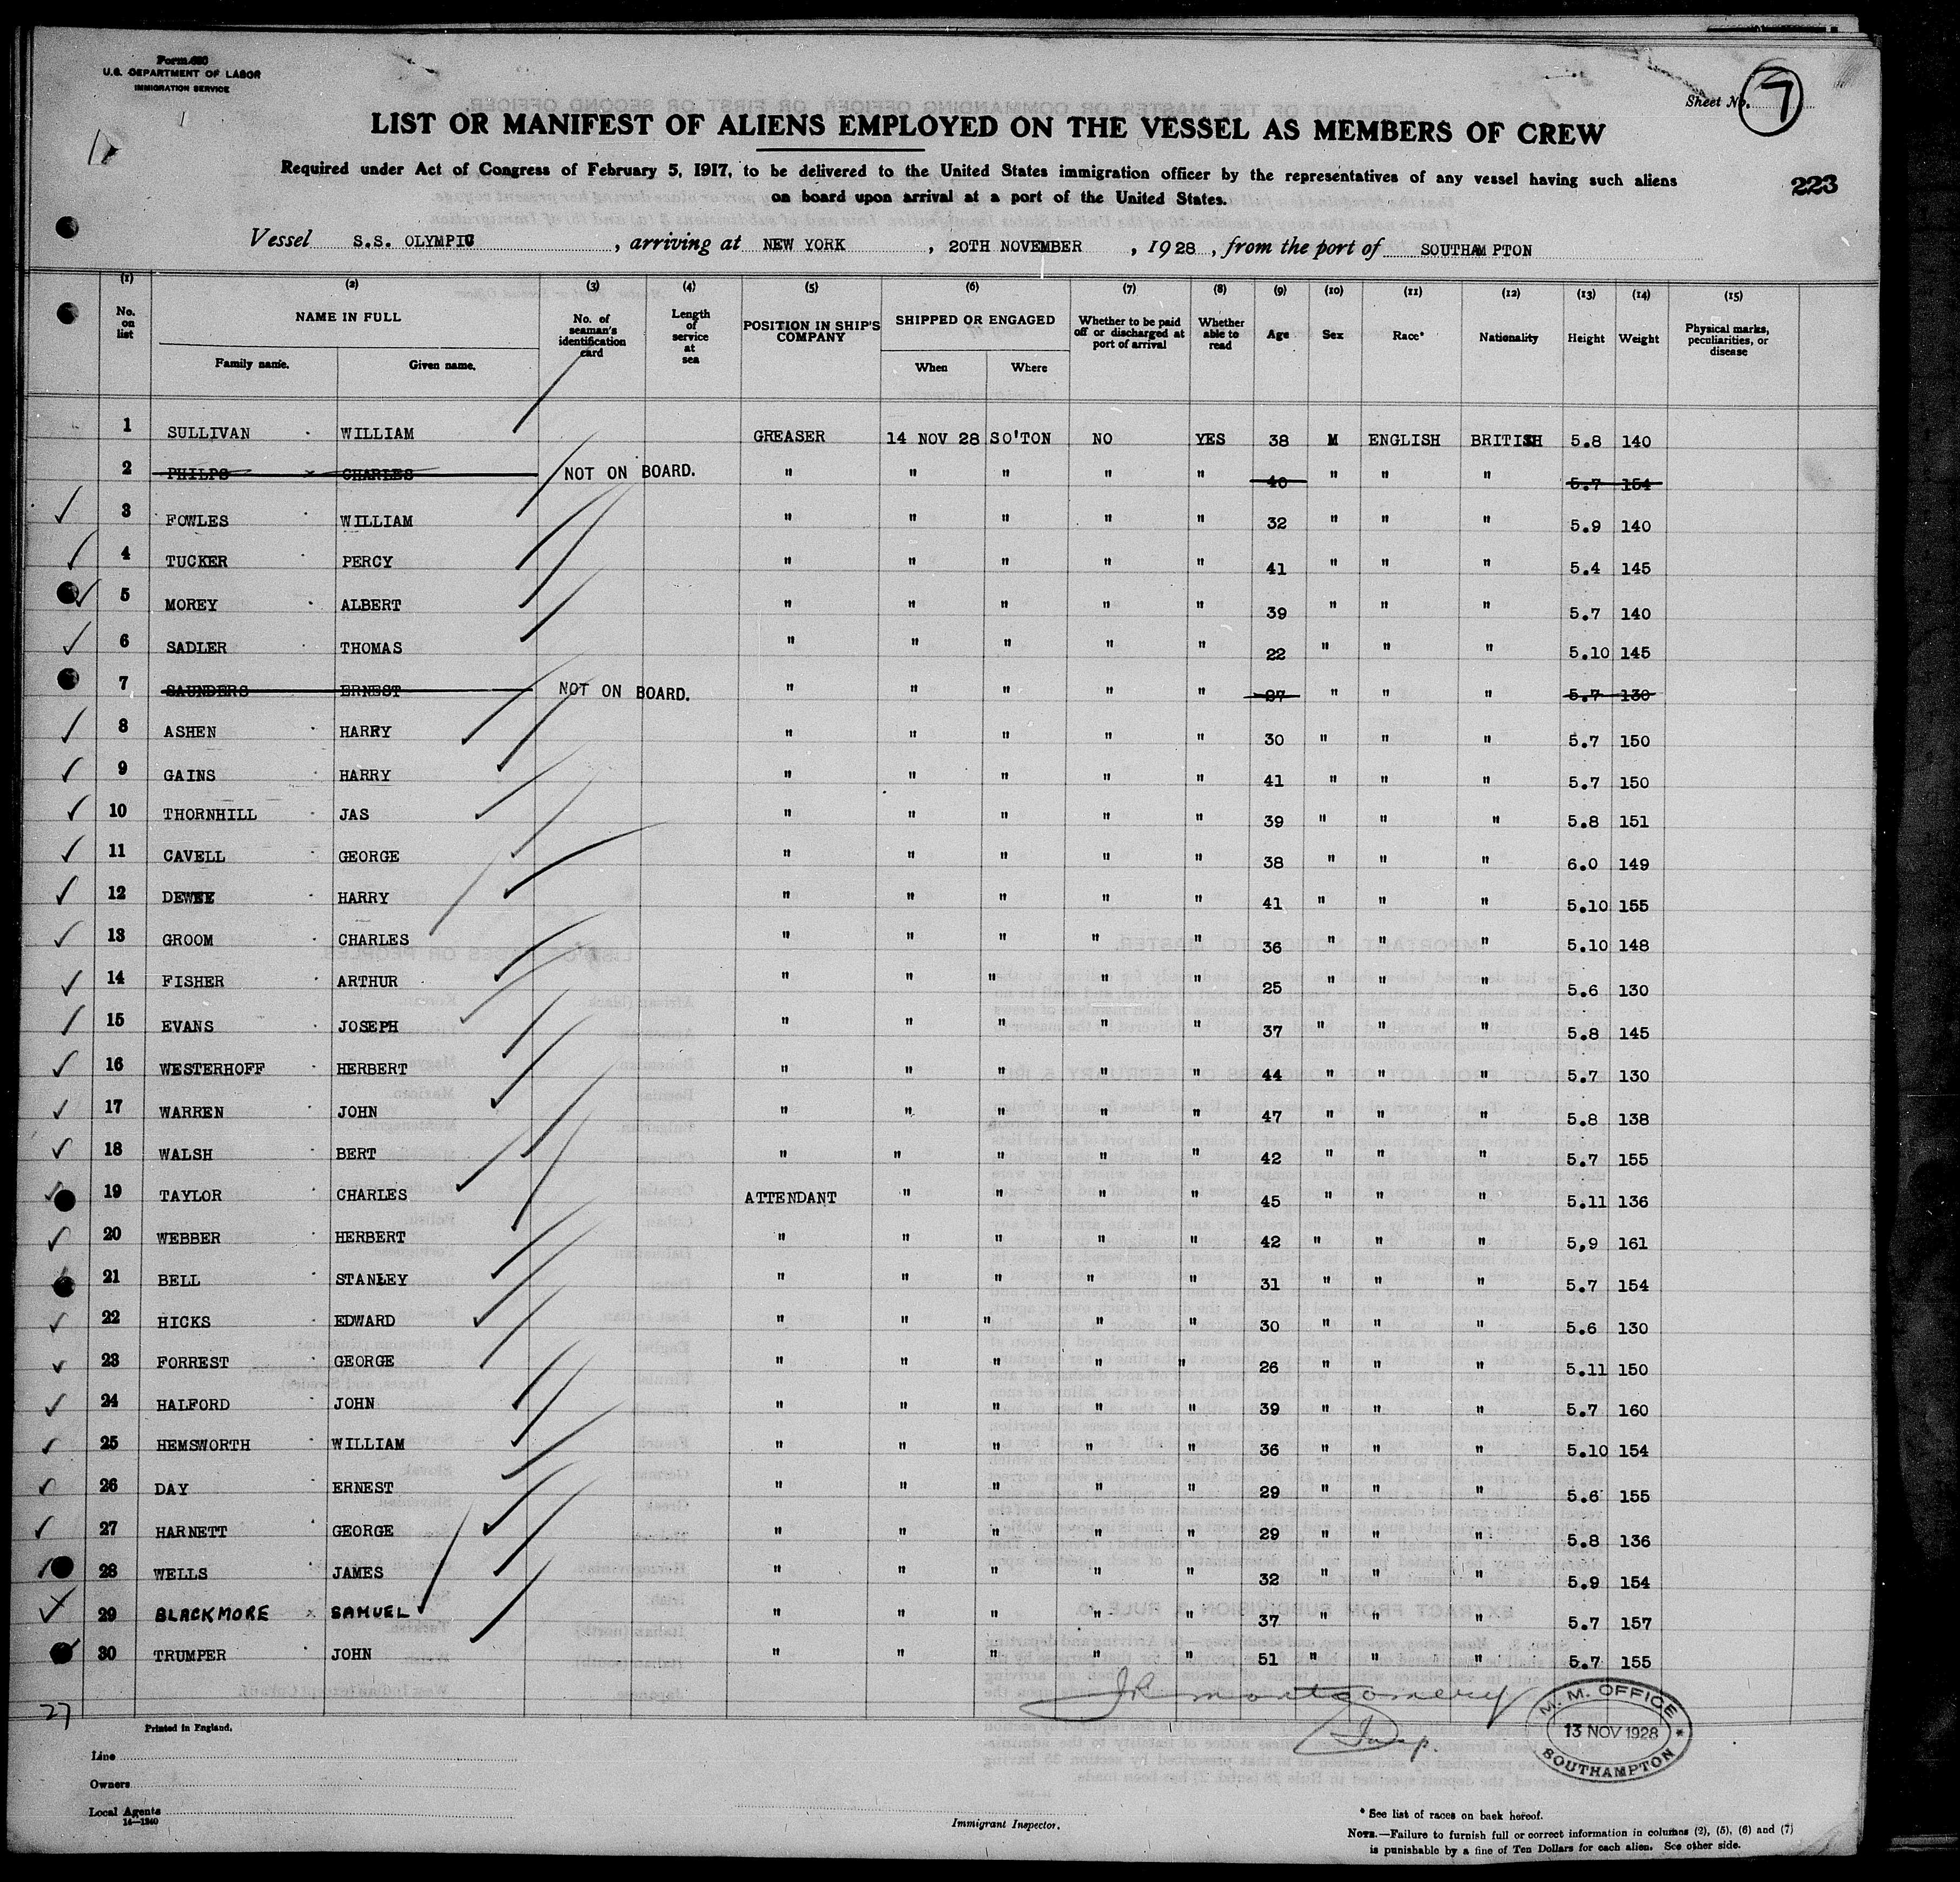 Form 680
U.S. DEPARTMENT OF LABOR
IMMIGRATION SERVICE
Sheet No. 7
LIST OR MANIFEST OF ALIENS EMPLOYED ON THE VESSEL AS MEMBERS OF CREW
Required under Act of Congress of February 5, 1917, to be delivered to the United States immigration officer by the representatives of any vessel having such aliens
on board upon arrival at a port of the United States.
223
Vessel S.S. OLYMPIC, arriving at NEW YORK, 20TH NOVEMBER, 1928, from the port of SOUTHAMPTON
(1) (2) (3) (4) (5) (6) (7) (8) (9) (10) (11) (12) (13) (14) (15)
No. on list NAME IN FULL Family name. Given name. No. of seaman's identification card Length of service at sea POSITION IN SHIP'S COMPANY SHIPPED OR ENGAGED When Where Whether to be paid off or discharged at port of arrival Whether able to read Age Sex Race* Nationality Height Weight Physical marks, peculiarities, or disease
1 SULLIVAN WILLIAM GREASER 14 NOV 28 SO'TON NO YES 38 M ENGLISH BRITISH 5.8 140
2 PHILPS x CHARLES NOT ON BOARD. " " " " " 40 " " " 5.7 154
3 FOWLES WILLIAM " " " " " 32 " " " 5.9 140
4 TUCKER PERCY " " " " " 41 " " " 5.4 145
5 MOREY ALBERT " " " " " 39 " " " 5.7 140
6 SADLER THOMAS " " " " " 22 " " " 5.10 145
7 SAUNDERS ERNEST NOT ON BOARD. " " " " " 27 " " " 5.7 130
8 ASHEN HARRY " " " " " 30 " " " 5.7 150
9 GAINS HARRY " " " " " 41 " " " 5.7 150
10 THORNHILL JAS " " " " " 39 " " " 5.8 151
11 CAVELL GEORGE " " " " " 38 " " " 6.0 149
12 DEWEY HARRY " " " " " 41 " " " 5.10 155
13 GROOM CHARLES " " " " " 36 " " " 5.10 148
14 FISHER ARTHUR " " " " " 25 " " " 5.6 130
15 EVANS JOSEPH " " " " " 37 " " " 5.8 145
16 WESTERHOFF HERBERT " " " " " 44 " " " 5.7 130
17 WARREN JOHN " " " " " 47 " " " 5.8 138
18 WALSH BERT " " " " " 42 " " " 5.7 155
19 TAYLOR CHARLES ATTENDANT " " " " 45 " " " 5.11 136
20 WEBBER HERBERT " " " " " 42 " " " 5,9 161
21 BELL STANLEY " " " " " 31 " " " 5.7 154
22 HICKS EDWARD " " " " " 30 " " " 5.6 130
23 FORREST GEORGE " " " " " 26 " " " 5.11 150
24 HALFORD JOHN " " " " " 39 " " " 5.7 160
25 HEMSWORTH WILLIAM " " " " " 36 " " " 5.10 154
26 DAY ERNEST " " " " " 29 " " " 5.6 155
27 HARNETT GEORGE " " " " " 29 " " " 5.8 136
28 WELLS JAMES " " " " " 32 " " " 5.9 154
29 BLACKMORE x SAMUEL " " " " " 37 " " " 5.7 157
30 TRUMPER JOHN " " " " " 51 " " " 5.7 155
27
JR Montgomery
Insp.
M. M. OFFICE
13 NOV 1928
SOUTHAMPTON
Printed in England.
Line
Owners
Local Agents
14-1240
Immigrant Inspector.
* See list of races on back hereof.
NOTE.—Failure to furnish full or correct information in columns (2), (5), (6) and (7)
is punishable by a fine of Ten Dollars for each alien. See other side.